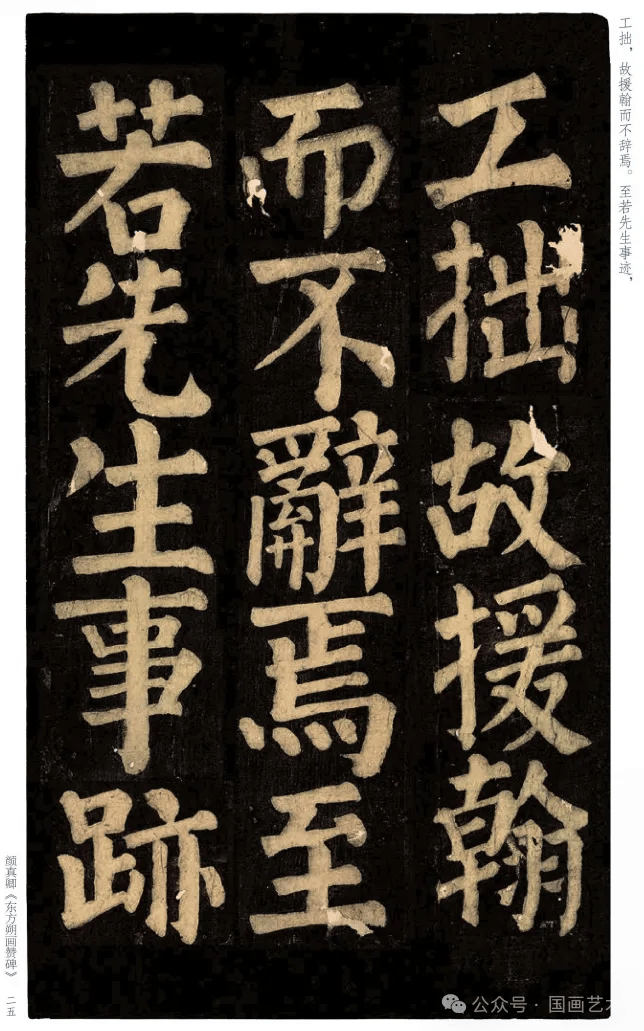 工拙，故援翰而不辞焉。至若先生事迹，
工拙故援翰
而不辭焉至
若先生事跡
颜真卿《东方朔画赞碑》 二五
公众号·国画艺术